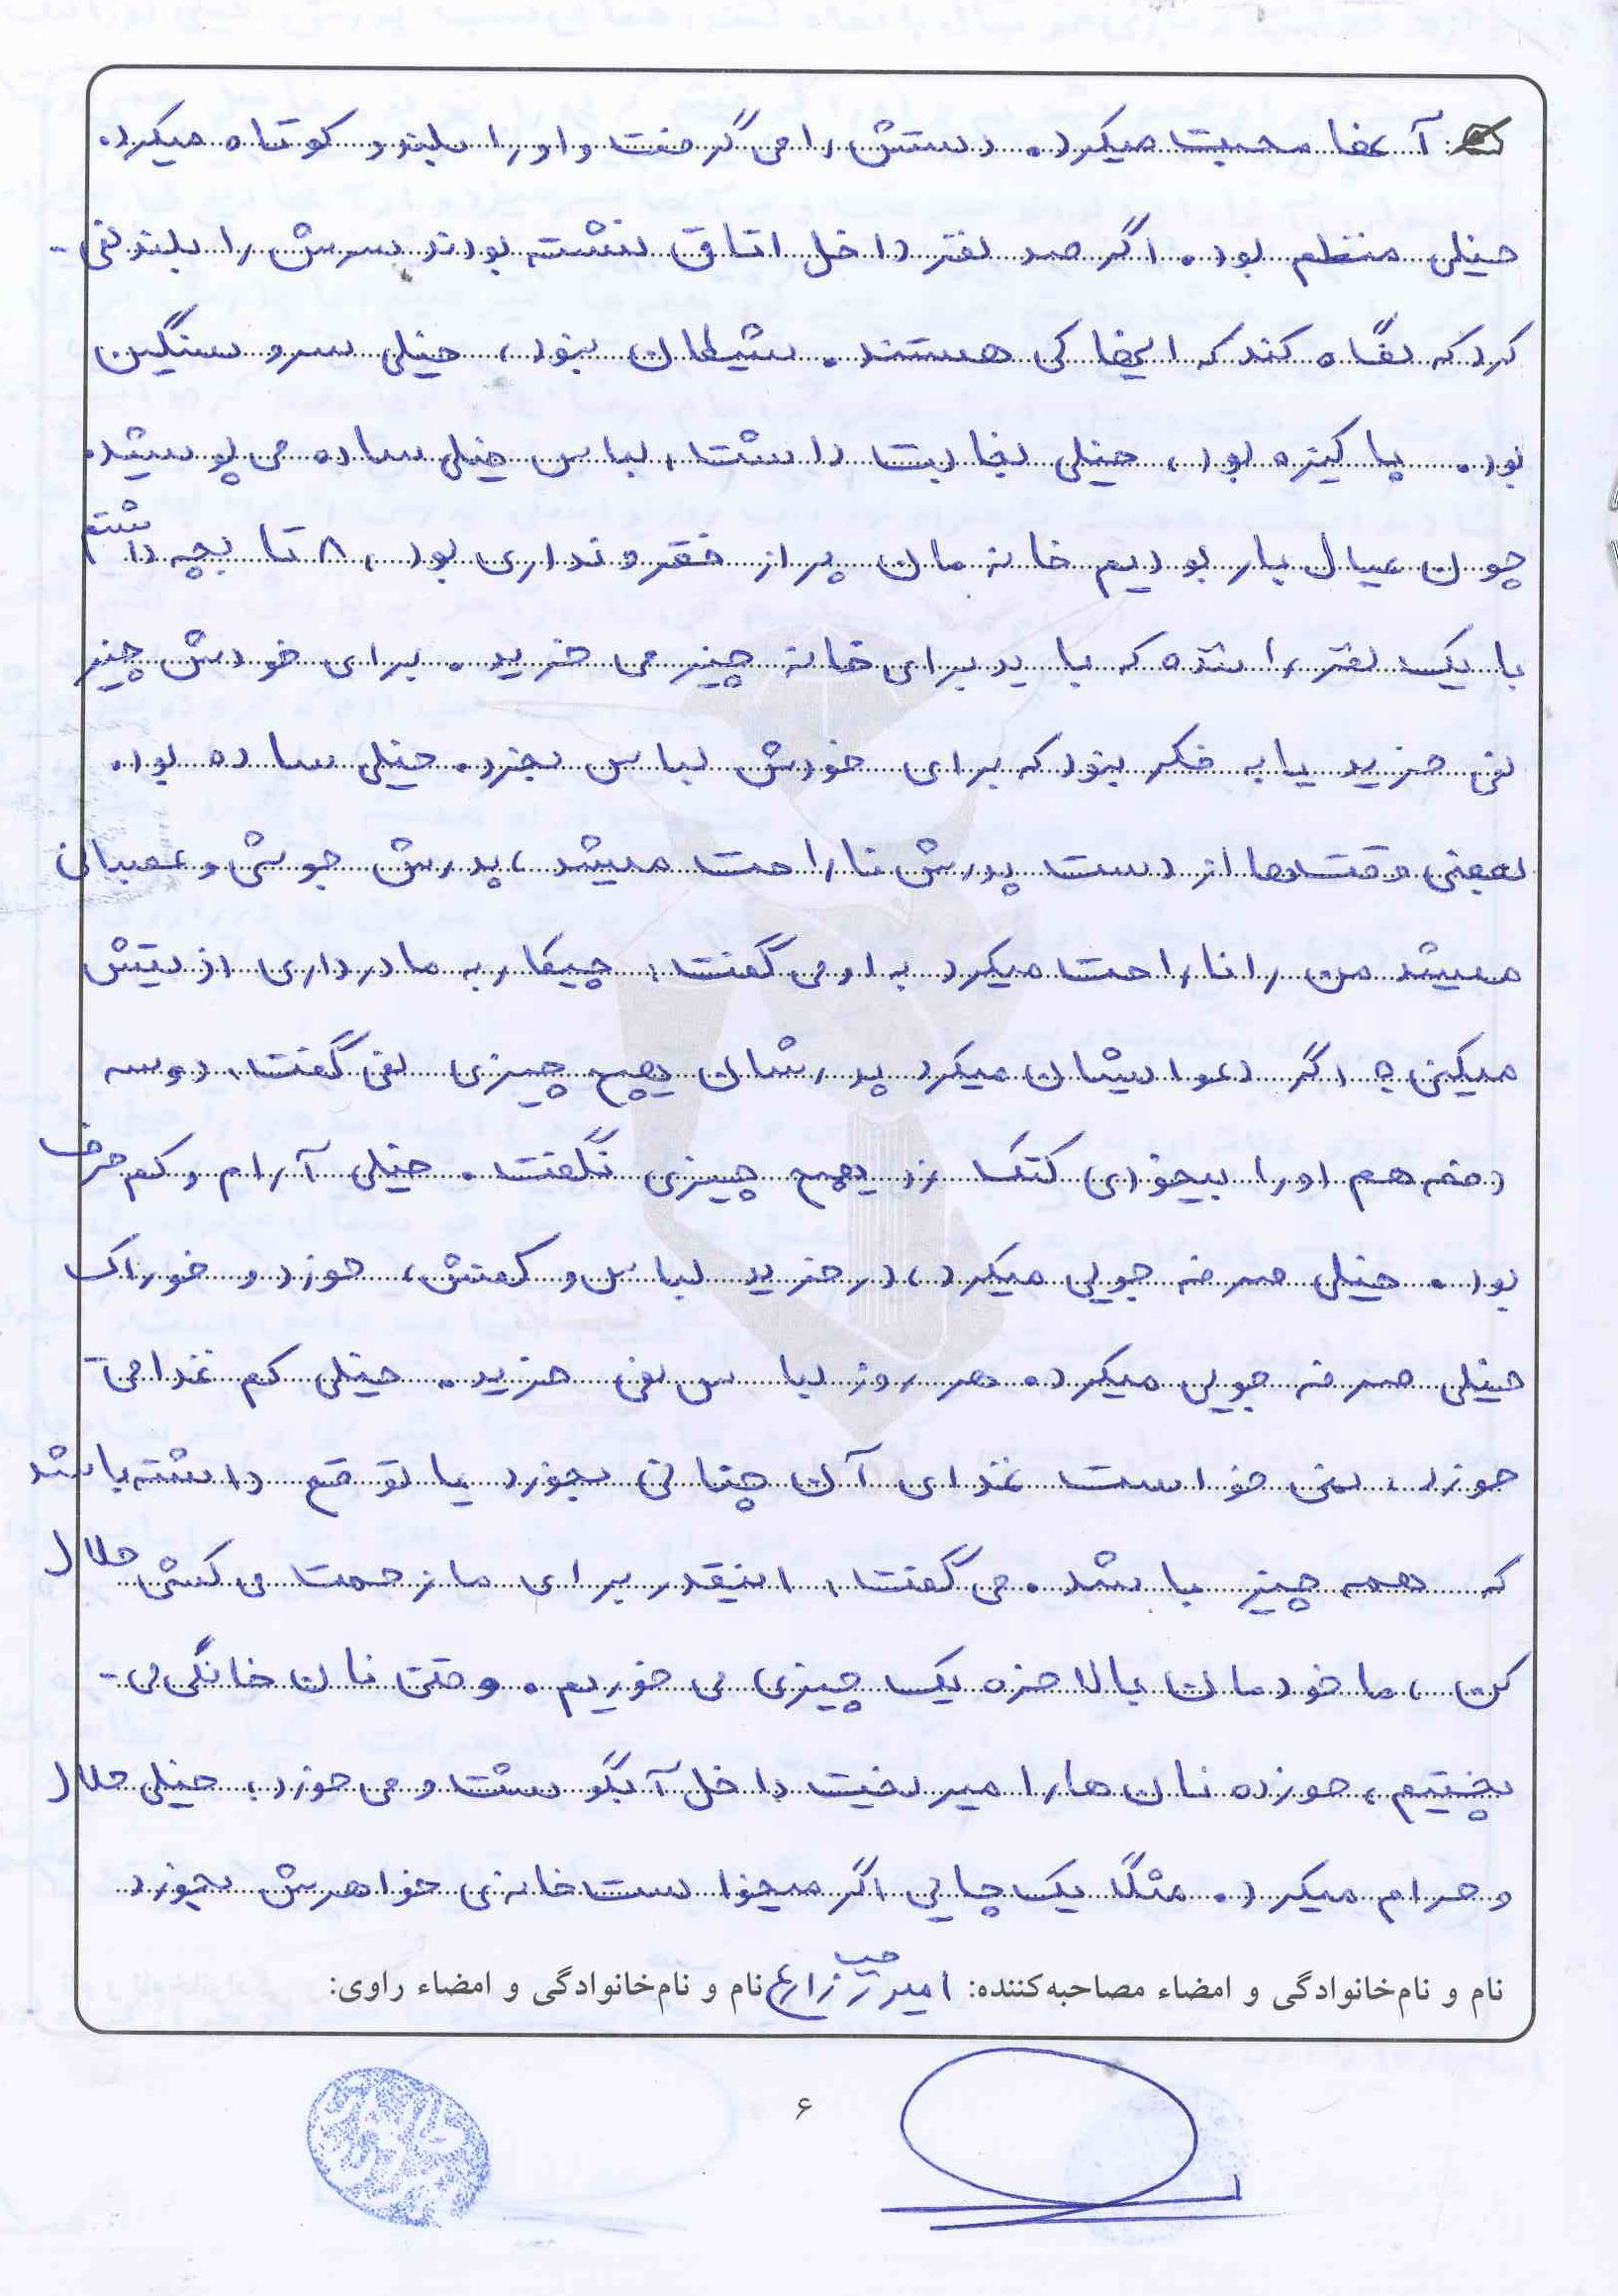 آنها محبت میکرد. دستش را می گرفت و او را بلند و کوتاه میکرد.
خیلی منظم بود. اگر صد نفر داخل اتاق نشسته بودند سرش را بلند نمی-
کرد که نگاه کند که اینها کی هستند. شیطان نبود، خیلی سر و سنگین
بود. پاکیزه بود، خیلی نجابت داشت، لباس خیلی ساده می پوشید.
چون عیال بار بودیم خانه مان پر از فقر و نداری بود، ۸ تا بچه داشتم
با یک نفر راننده که باید برای خانه چیز می خرید. برای خودش چیز
نمی خرید یا به فکر نبود که برای خودش لباس بخرد. خیلی ساده بود.
بعضی وقت ها از دست پدرش ناراحت میشد، پدرش جوشی و عصبانی
میشد من را ناراحت میکرد به او می گفت، چیکار به مادر داری اذیتش
میکنی؟ اگر دعوایشان میکرد پدرشان هیچ چیزی نمی گفت، دو سه
دفعه هم او را بیخودی کتک زد هیچ چیزی نگفت. خیلی آرام و کم حرف
بود. خیلی صرفه جویی میکرد، در خرید لباس و کفش، خورد و خوراک
خیلی صرفه جویی میکرد. هر روز لباس نمی خرید. خیلی کم غذا می-
خورد، نمی خواست غذای آن چنانی بخورد یا توقع داشته باشد
که همه چیز باشد. می گفت، اینقدر برای ما زحمت می کشی حلال
کن، ما خودمان بالاخره یک چیزی می خوریم. وقتی نان خانگی می-
پختیم، خورده نان ها را میریخت داخل آبگوشت و می خورد، خیلی حلال
و حرام میکرد. مثلاً یک چایی اگر میخواست خانه ی خواهرش بخورد
نام و نام‌خانوادگی و امضاء مصاحبه‌کننده: امیر زارع نام و نام‌خانوادگی و امضاء راوی:
۶